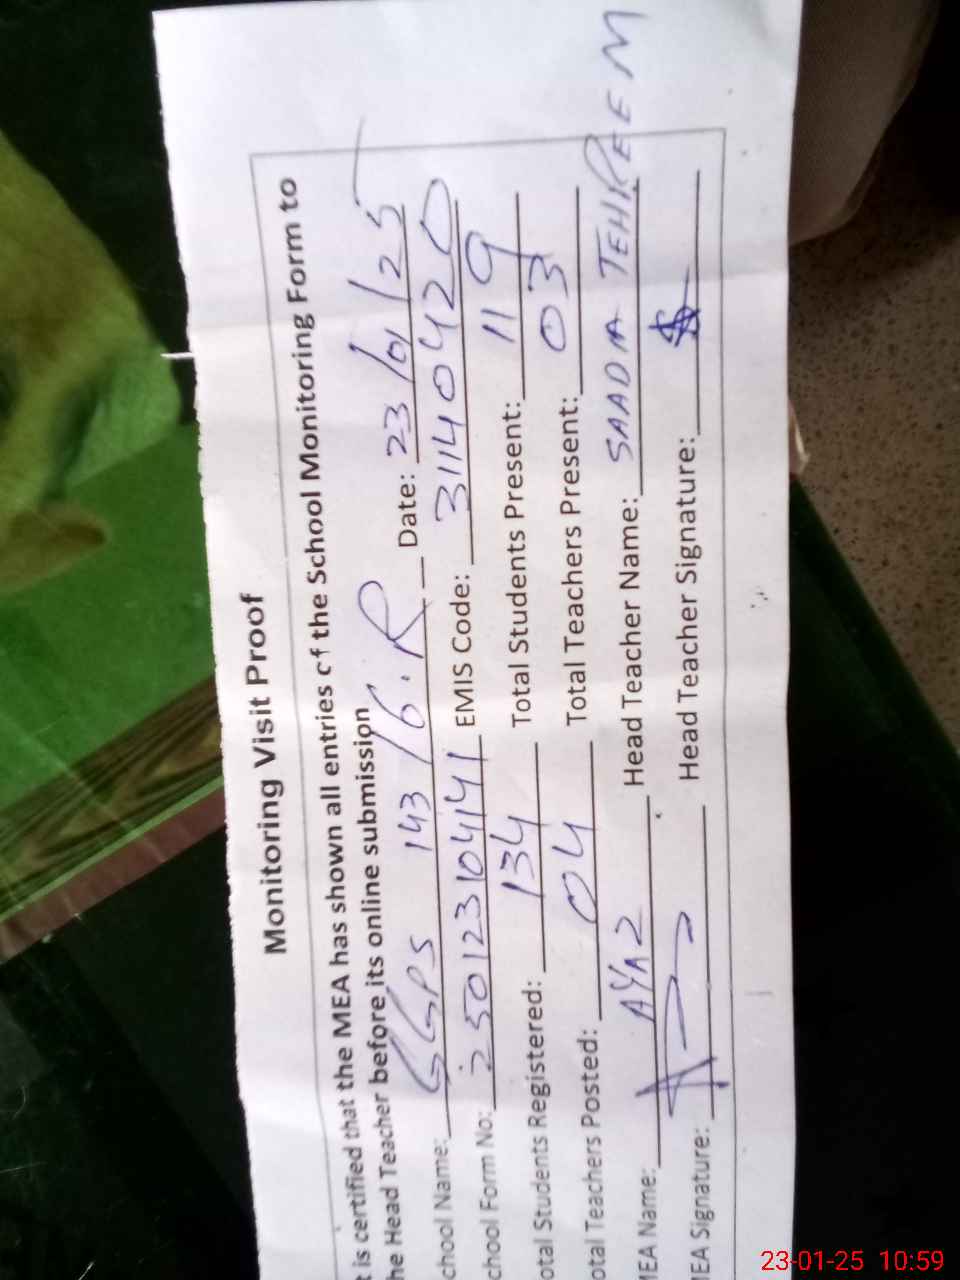 Monitoring Visit Proof
t is certified that the MEA has shown all entries of the School Monitoring Form to
he Head Teacher before its online submission
chool Name: GGPS 143/6.R Date: 23/01/25
chool Form No: 250123104141 EMIS Code: 31140420
otal Students Registered: 134 Total Students Present: 119
otal Teachers Posted: 04 Total Teachers Present: 03
MEA Name: AYAZ Head Teacher Name: SAADIA TEHREEM
MEA Signature: Head Teacher Signature:
23-01-25 10:59